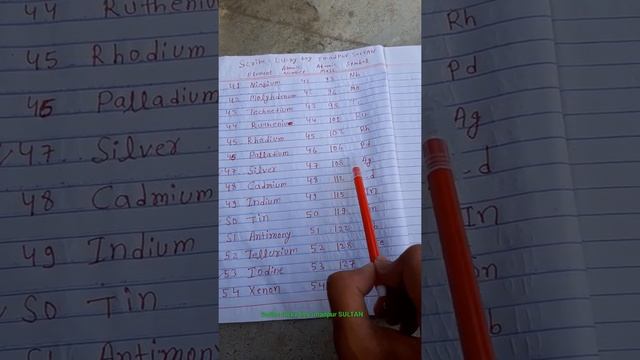 Element Atomic Number Atomic Mass Symbol
41 Niobium 41 93 Nb
42 Molybdenum 42 96 Mo
43 Technetium 43 98
44 Ruthenium 44 101 Ru
45 Rhodium 45 103 Rh
45 Palladium 46 106 Pd
47 Silver 47 108 Ag
48 Cadmium 48 112 d
49 Indium 49 115 In
50 Tin 50 119 n
51 Antimony 51 122 b
52 Tellurium 52 128 e
53 Iodine 53 127
54 Xenon 54
SULTAN
44 Ruthenium
45 Rhodium
45 Palladium
47 Silver
48 Cadmium
49 Indium
50 Tin
51 Antimony
Rh
Pd
Ag
d
In
n
b